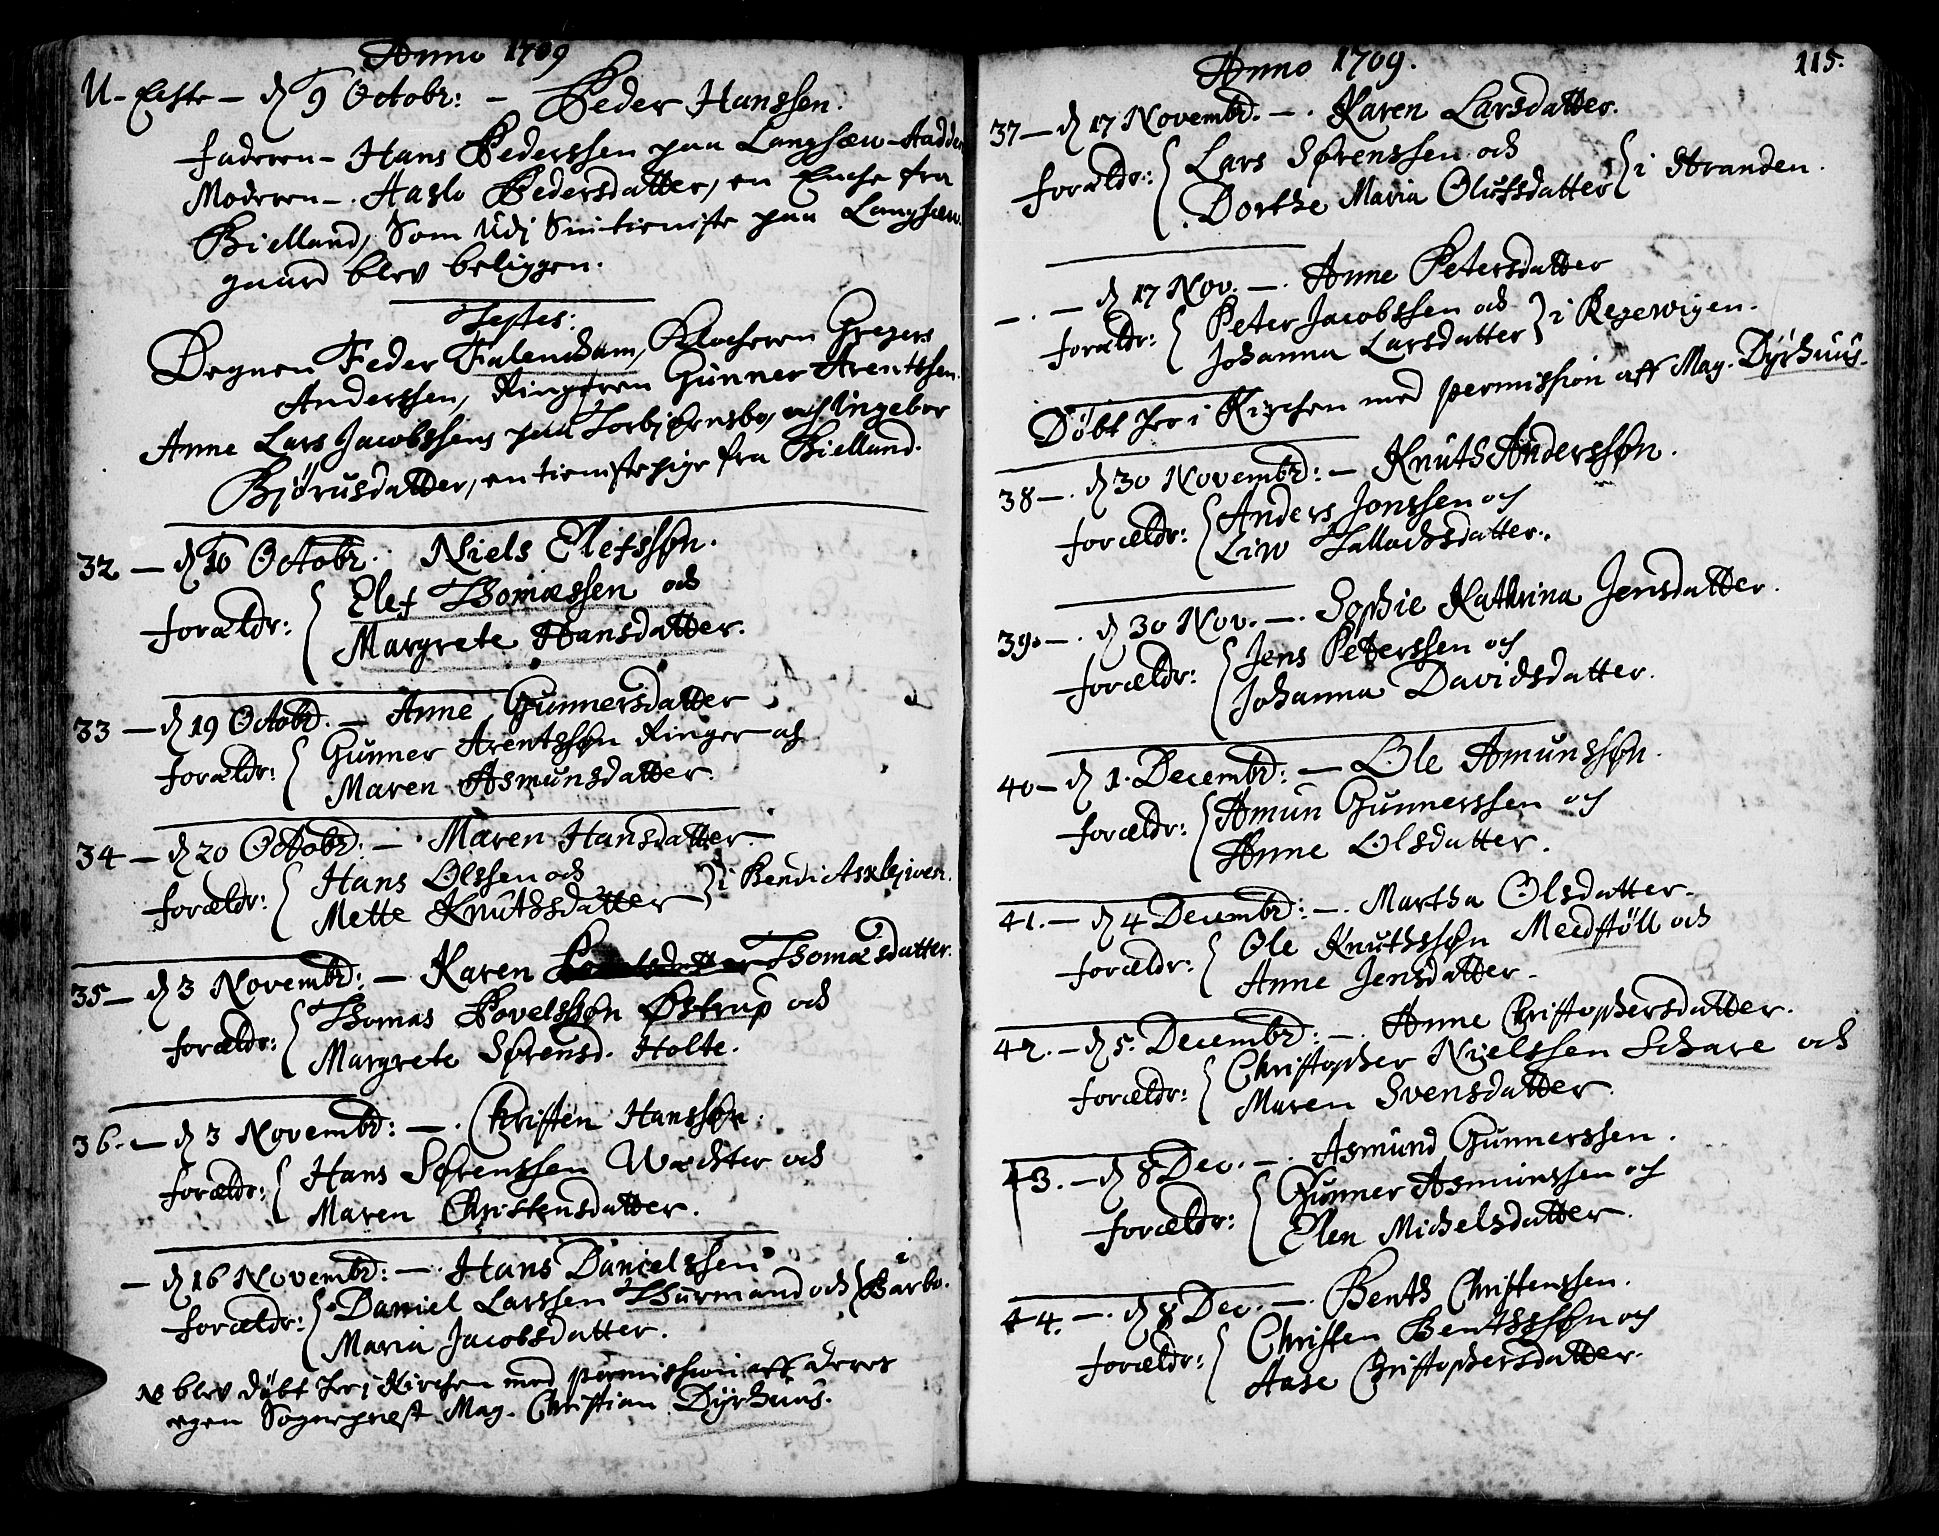 Anno 1709
U-Eckte - d 9 Octobr: - Peder Hanssen.
faderen - Hans Pederssen paa Langsæw-
Moderen -. Aaslo Pedersdatter, en Enche fra
Bielland, Som Udj Sin tieniste paa Langsæw
gaard blev beliggen.
Testes:
Degnen Feder Falencham, Klocheren Gregers
Anderssen, Ringeren Gunner Arentssen.
Anne Lars Jacobssens paa Torbjørnsbo, och Ingebor
Bjørnsdatter, en tienistepige fra Bielland.
32 - d 10 Octobr. Niels Elefssøn.
forældr: Elef Thomæssen och
Margrete Hansdatter.
33 - d 19 Octobr. - Anne Gunnersdatter
forældr: Gunner Arentssøn Ringer och
Maren Asmunsdatter.
34 - d 20 Octobr: - Maren Hansdatter.
forældr: Hans Olssen och
Mette Knuthsdatter i Bendixsklejwen.
35 - d 3 Novembr: - Karen Thomæsdatter.
forældr: Thomas Povelssøn Østrup och
Margrete Sørensd. Holte.
36. - d 3 Novembr: -. Christen Hanssøn.
forældr: Hans Sørenssen Wachter och
Maren Christensdatter.
- d 16 Novembr: -. Hans Danielssen
forældr: Daniel Larssen Thurmand och i Barbo.
Maria Jacobsdatter.
NB blev døbt her i Kirchen med permission aff deres
egen Sogneprest Mag. Christian Dyrhuus.
Anno 1709.
115.
37 - d 17 Novembr. -. Karen Larsdatter.
forældr: Lars Sørenssen och
Dorthe Maria Olufsdatter i Stranden.
-. - d 17 Nov. -. Anne Petersdatter
forældr: Peter Jacobssen och
Johanna Larsdatter i Regewigen.
Døbt her i Kirchen med permission aff Mag. Dyrhuus.
38 -. d 30 Novembr: - Knuth Anderssøn.
forældr: Anders Jonssen och
Liw Tallachsdatter.
39. -. d 30 Nov. -. Sophie Kathrina Jensdatter.
forældr: Jens Peterssen och
Johanna Davidsdatter.
40 - d 1. Decembr: - Ole Amunssøn.
forældr: Amun Gunnerssen och
Anne Olsdatter.
41. - d 4 Decembr: -. Martha Olsdatter.
forældr: Ole Knuthssøn Meedstøll och
Anne Jensdatter.
42. - d 5. Decembr: -. Anne Christophersdatter.
forældr: Christopher Nielssen Schare och
Maren Svensdatter.
43. - d 8 Dec. -. Asmund Gunnerssen.
forældr: Gunner Asmunssen och
Elen Michelsdatter.
44. -. d 8 Dec. -. Benth Christenssen.
forældr: Christen Benthssøn och
Aase Christophersdatter.